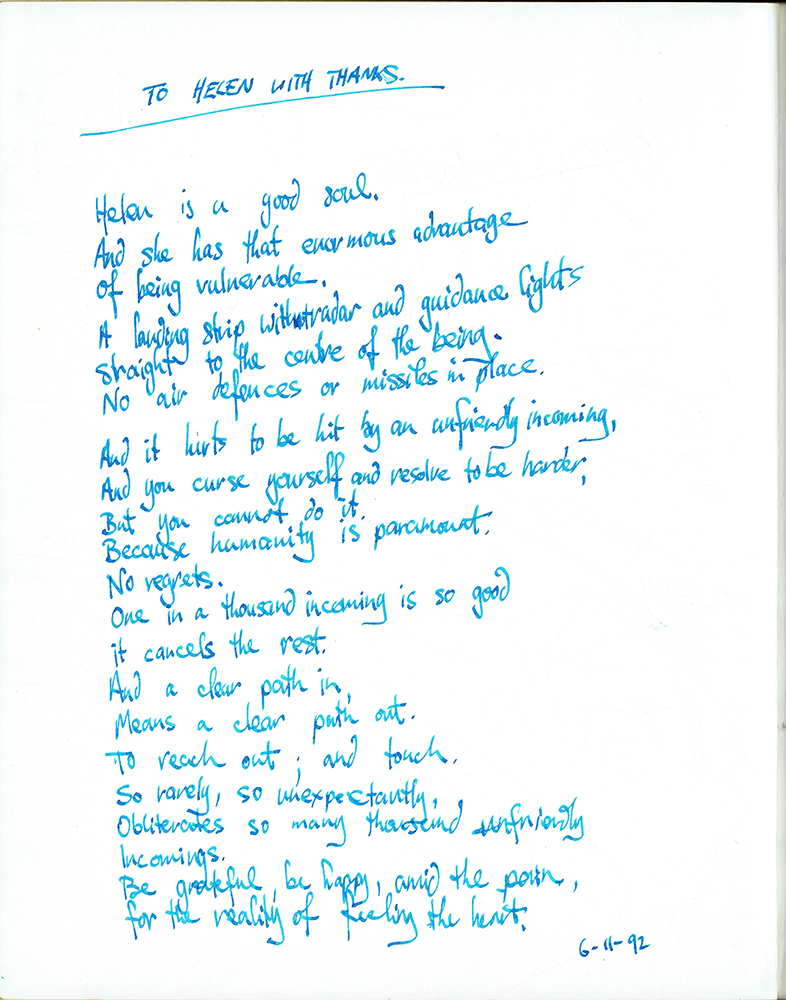 TO HELEN WITH THANKS.
Helen is a good soul.
And she has that enormous advantage
of being vulnerable.
A landing strip with radar and guidance lights
straight to the centre of the being.
No air defences or missiles in place.
And it hurts to be hit by an unfriendly incoming,
And you curse yourself and resolve to be harder,
But you cannot do it.
Because humanity is paramount.
No regrets.
One in a thousand incoming is so good
it cancels the rest.
And a clear path in,
Means a clear path out.
To reach out; and touch.
So rarely, so unexpectantly,
Obliterates so many thousand unfriendly
Incomings.
Be grateful, be happy, amid the pain,
for the reality of feeling the heart.
6-11-92